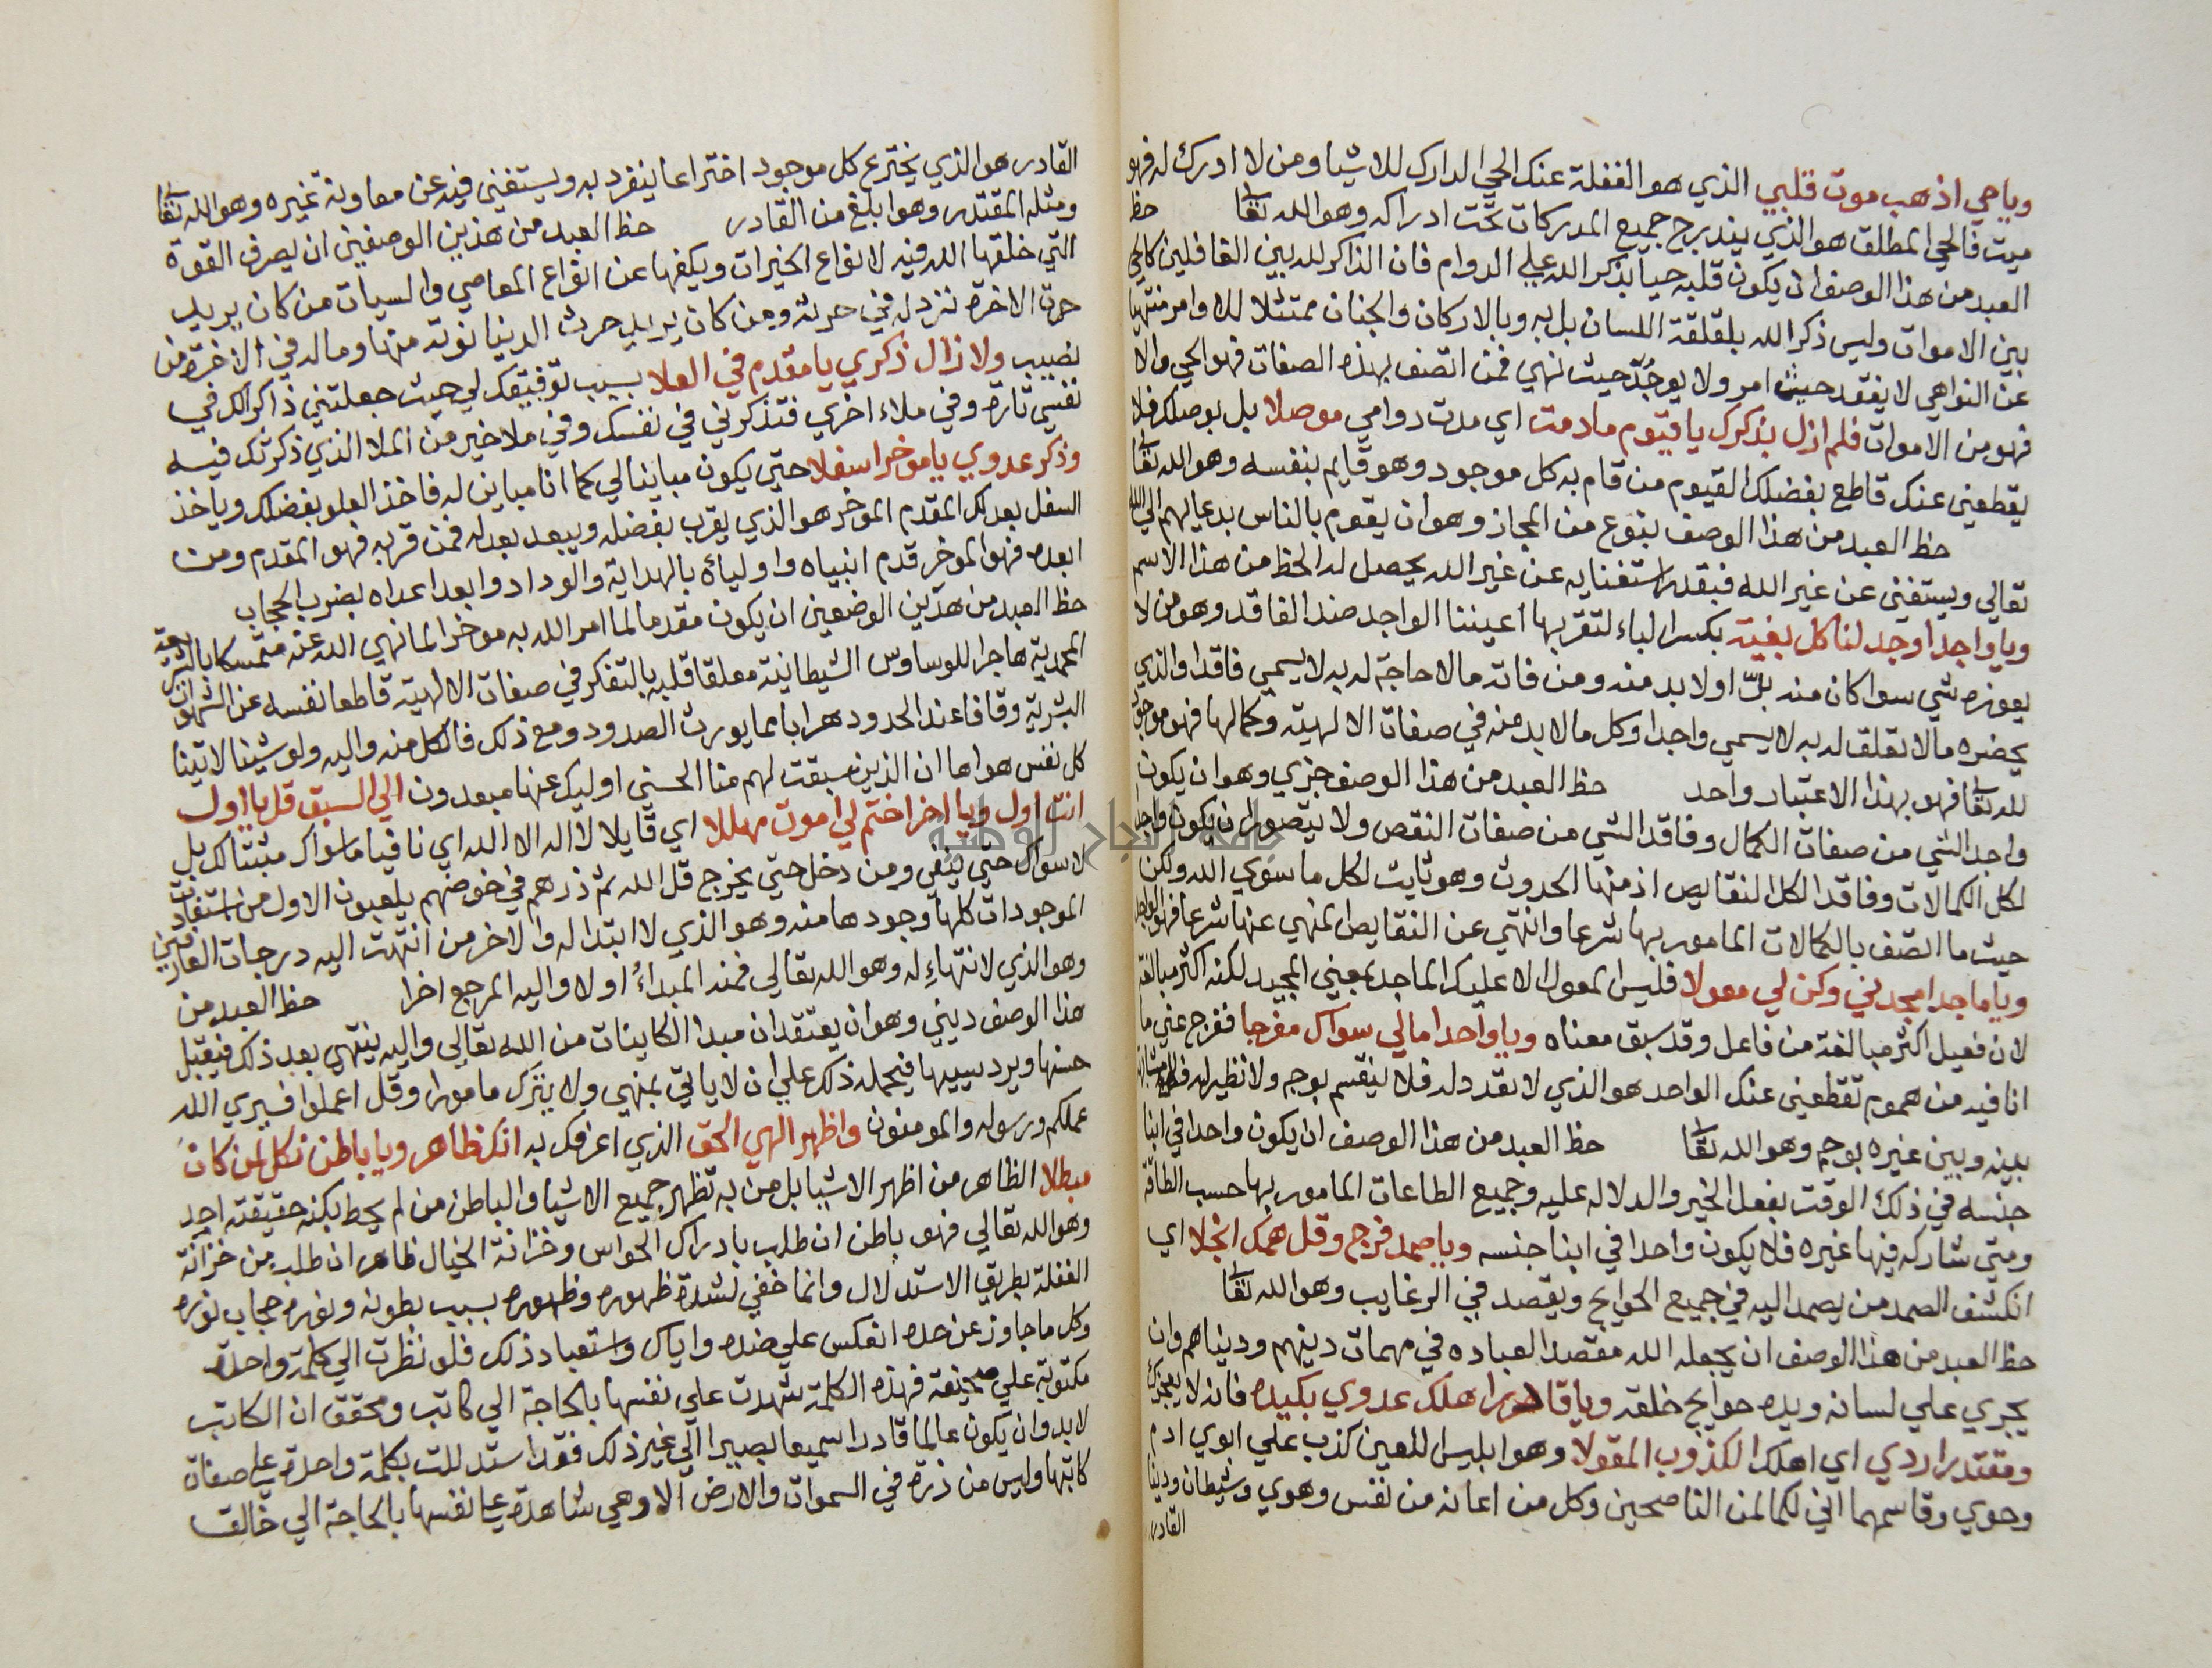 وياحي اذهب موت قلبي الذي هو الغفلة عنك الحي الدارك للاشيا ومن لا ادرك له فهو
ميت فالحي المطلق هو الذي يندرج جميع المدركات تحت ادراكه وهو الله تعا حظ
العبد من هذا الوصف ان يكون قلبه حيا بذكر الله علي الدوام فان الذاكر لله بين الغافلين كالحي
بين الاموات وليس ذكر الله بلقلقة اللسان بل به وبالاركان والجنان ممتثلا للاوامر منتهيا
عن النواهي لا يفقد حيث امر ولا يوجد حيث نهي فمن اتصف بهذه الصفات فهو الحي والا
فهو من الاموات فلم ازل بذكرك يا قيوم مادمت اي مدت دوامي موصلا بل بوصلك فلا
يقطعني عنك قاطع بفضلك القيوم من قام به كل موجود وهو قايم بنفسه وهو الله تعا
حظ العبد من هذا الوصف بنوع من المجاز وهو ان يقوم بالناس بدعايهم الي الله
تعالي ويستغني عن غير الله فبقدر استغنايه عن غير الله يحصل له الحظ من هذا الاسم
وياواجد اوجد لنا كل بغية بكسر الباء لتقر بها اعيننا الواجد ضد الفاقد وهو من لا
يعوزه شي سوا كان منه بدّ او لا بد منه ومن فاته مالا حاجة له به لا يسمي فاقدا والذي
يحضره مالا تعلق له به لا يسمي واجدا وكل مالا بد منه في صفات الالهية وكمالها فهو موجود
لله تعا فهو بهذا الاعتبار واجد حظ العبد من هذا الوصف جزي وهو ان يكون
واجد الشي من صفات الكمال وفاقد الشي من صفات النقص ولا يتصور ان يكون واجد
لكل الكمالات وفاقدا لكل النقايص اذ منها الحدوث وهو ثابت لكل ما سوي الله ولكن
حيث ما اتصف بالكمالات المامور بها شرعا وانتهي عن النقايص المنهي عنها شرعا فهو الواجد
وياماجدا مجدني وكن لي معولا فليس المعول الا عليك الماجد بمعني المجيد لكنه اكثر مبالغة
لان فعيل اكثر مبالغة من فاعل وقد سبق معناه وياواحدا مالي سواك مفرجا ففرج عني ما
انا فيه من هموم تقطعني عنك الواحد هو الذي لا تعدد له فلا ينقسم بوجه ولا نظير له
بينه وبين غيره بوجه وهو الله تعا حظ العبد من هذا الوصف ان يكون واحدا في ابنا
جنسه في ذلك الوقت بفعل الخير والدلاله عليه وجميع الطاعات المامور بها حسب الطاقة
ومتي شاركه فيها غيره فلا يكون واحدا في ابنا جنسه وياصمد فرج وقل همك انجلا اي
انكشف الصمد من يصمد اليه في جميع الحوايج ويقصد في الرغايب وهو الله تعا
حظ العبد من هذا الوصف ان يجعله الله مقصد العباده في مهمات دينهم ودنياهم وان
يجري علي لسانه ويده حوايج خلقه وياقادرا هلك عدوي بكيده فانه لا يعجزك
ومقتدرا ردي اي اهلك الكذوب المقولا وهو ابليس اللعين كذب علي ابوي ادم
وحوي وقاسمهما اني لكما لمن الناصحين وكل من اعانه من نفس وهوي وشيطان ودنيا
القادر
القادر هو الذي يخترع كل موجود اختراعا ينفرد به ويستغني فيه عن معاونة غيره وهو الله تعا
ومثله المقتدر وهو ابلغ من القادر حظ العبد من هذين الوصفين ان يصرف القوة
التي خلقها الله فيه لانواع الخيرات ويكفها عن انواع المعاصي والسيات من كان يريد
حرث الاخرة نزد له في حرثه ومن كان يريد حرث الدنيا نوته منها وماله في الاخرة من
نصيب ولازال ذكري يا مقدم في العلا بسبب توفيقك لي حيث جعلتني ذاكرا لك في
نفسي تارة وفي ملاء اخري فتذكرني في نفسك وفي ملا خير من الملا الذي ذكرتك فيه
وذكر عدوي ياموخر اسفلا حتي يكون مباينا لي كما انا مباين له فاخذ العلو بفضلك وياخذ
السفل بعدلك المقدم الموخر هو الذي يقرب بفضله ويبعد بعدله فمن قربه فهو المقدم ومن
ابعده فهو الموخر قدم انبياه واولياه بالهداية والوداد وابعد اعداه بضرب الحجاب
حظ العبد من هذين الوضعين ان يكون مقدما لما امر الله به موخرا لما نهي الله عنه متمسكا بالشريعة
المحمدية هاجرا للوساوس الشيطانية معلقا قلبه بالتفكر في صفات الالهية قاطعا نفسه عن الشهوات
البشرية وقافا عند الحدود هرابا مما يورث الصدود ومع ذلك فالكل منه واليه ولو شينا لاتينا
كل نفس هواها ان الذين سبقت لهم منا الحسني اوليك عنها مبعدون الي السبق قل يا اول
انت اول ويا اخر اختم لي اموت مهللا اي قايلا لا اله الا الله اي نافيا ماسواك مثبتا لك بل
لا سواك حتي ينفي ومن دخل حتي يخرج قل الله ثم ذرهم في خوضهم يلعبون الاول من استفادت
الموجودات كلها وجودها منه وهو الذي لا ابتدا له والاخر من انتهت اليه درجات العارفين
وهو الذي لا نتهاء له وهو الله تعالي فمنه المبداء اولا واليه المرجع اخرا حظ العبد من
هذا الوصف ديني وهو ان يعتقد ان مبدا الكاينات من الله تعالي واليه ينتهي بعد ذلك فيقبل
حسنها ويرد سييها فيحمله ذلك علي ان لا ياتي بمنهي ولا يترك مامورا وقل اعملوا فسيري الله
عملكم ورسوله والمومنون واظهر الهي الحق الذي اعرفك به انك ظاهر ويا باطن نكل لمن كان
مبطلا الظاهر من اظهر الاشيا بل من به تظهر جميع الاشيا والباطن من لم يحط بكنه حقيقته احد
وهو الله تعالي فهو باطن ان طلب بادراك الحواس وخزانة الخيال ظاهر ان طلب من خزانة
الغفلة بطريق الاستدلال وانما خفي لشدة ظهوره وظهوره بسبب بطونه ونوره حجاب نوره
وكل ما جاوز عن حده انعكس علي ضده واياك واستعباد ذلك فلو نظرت الي كلمة واحدة
مكتوبة علي صحيفة فهذه الكلمة شهدت علي نفسها بالحاجة الي كاتب ومحقق ان الكاتب
لابد وان يكون عالما قادرا سميعا بصيرا الي غير ذلك فقد استدللت بكلمة واحدة علي صفات
كاتبها وليس من ذرة في السموات والارض الا وهي شاهدة علي نفسها بالحاجة الي خالق
جامعة النجاح الوطنية